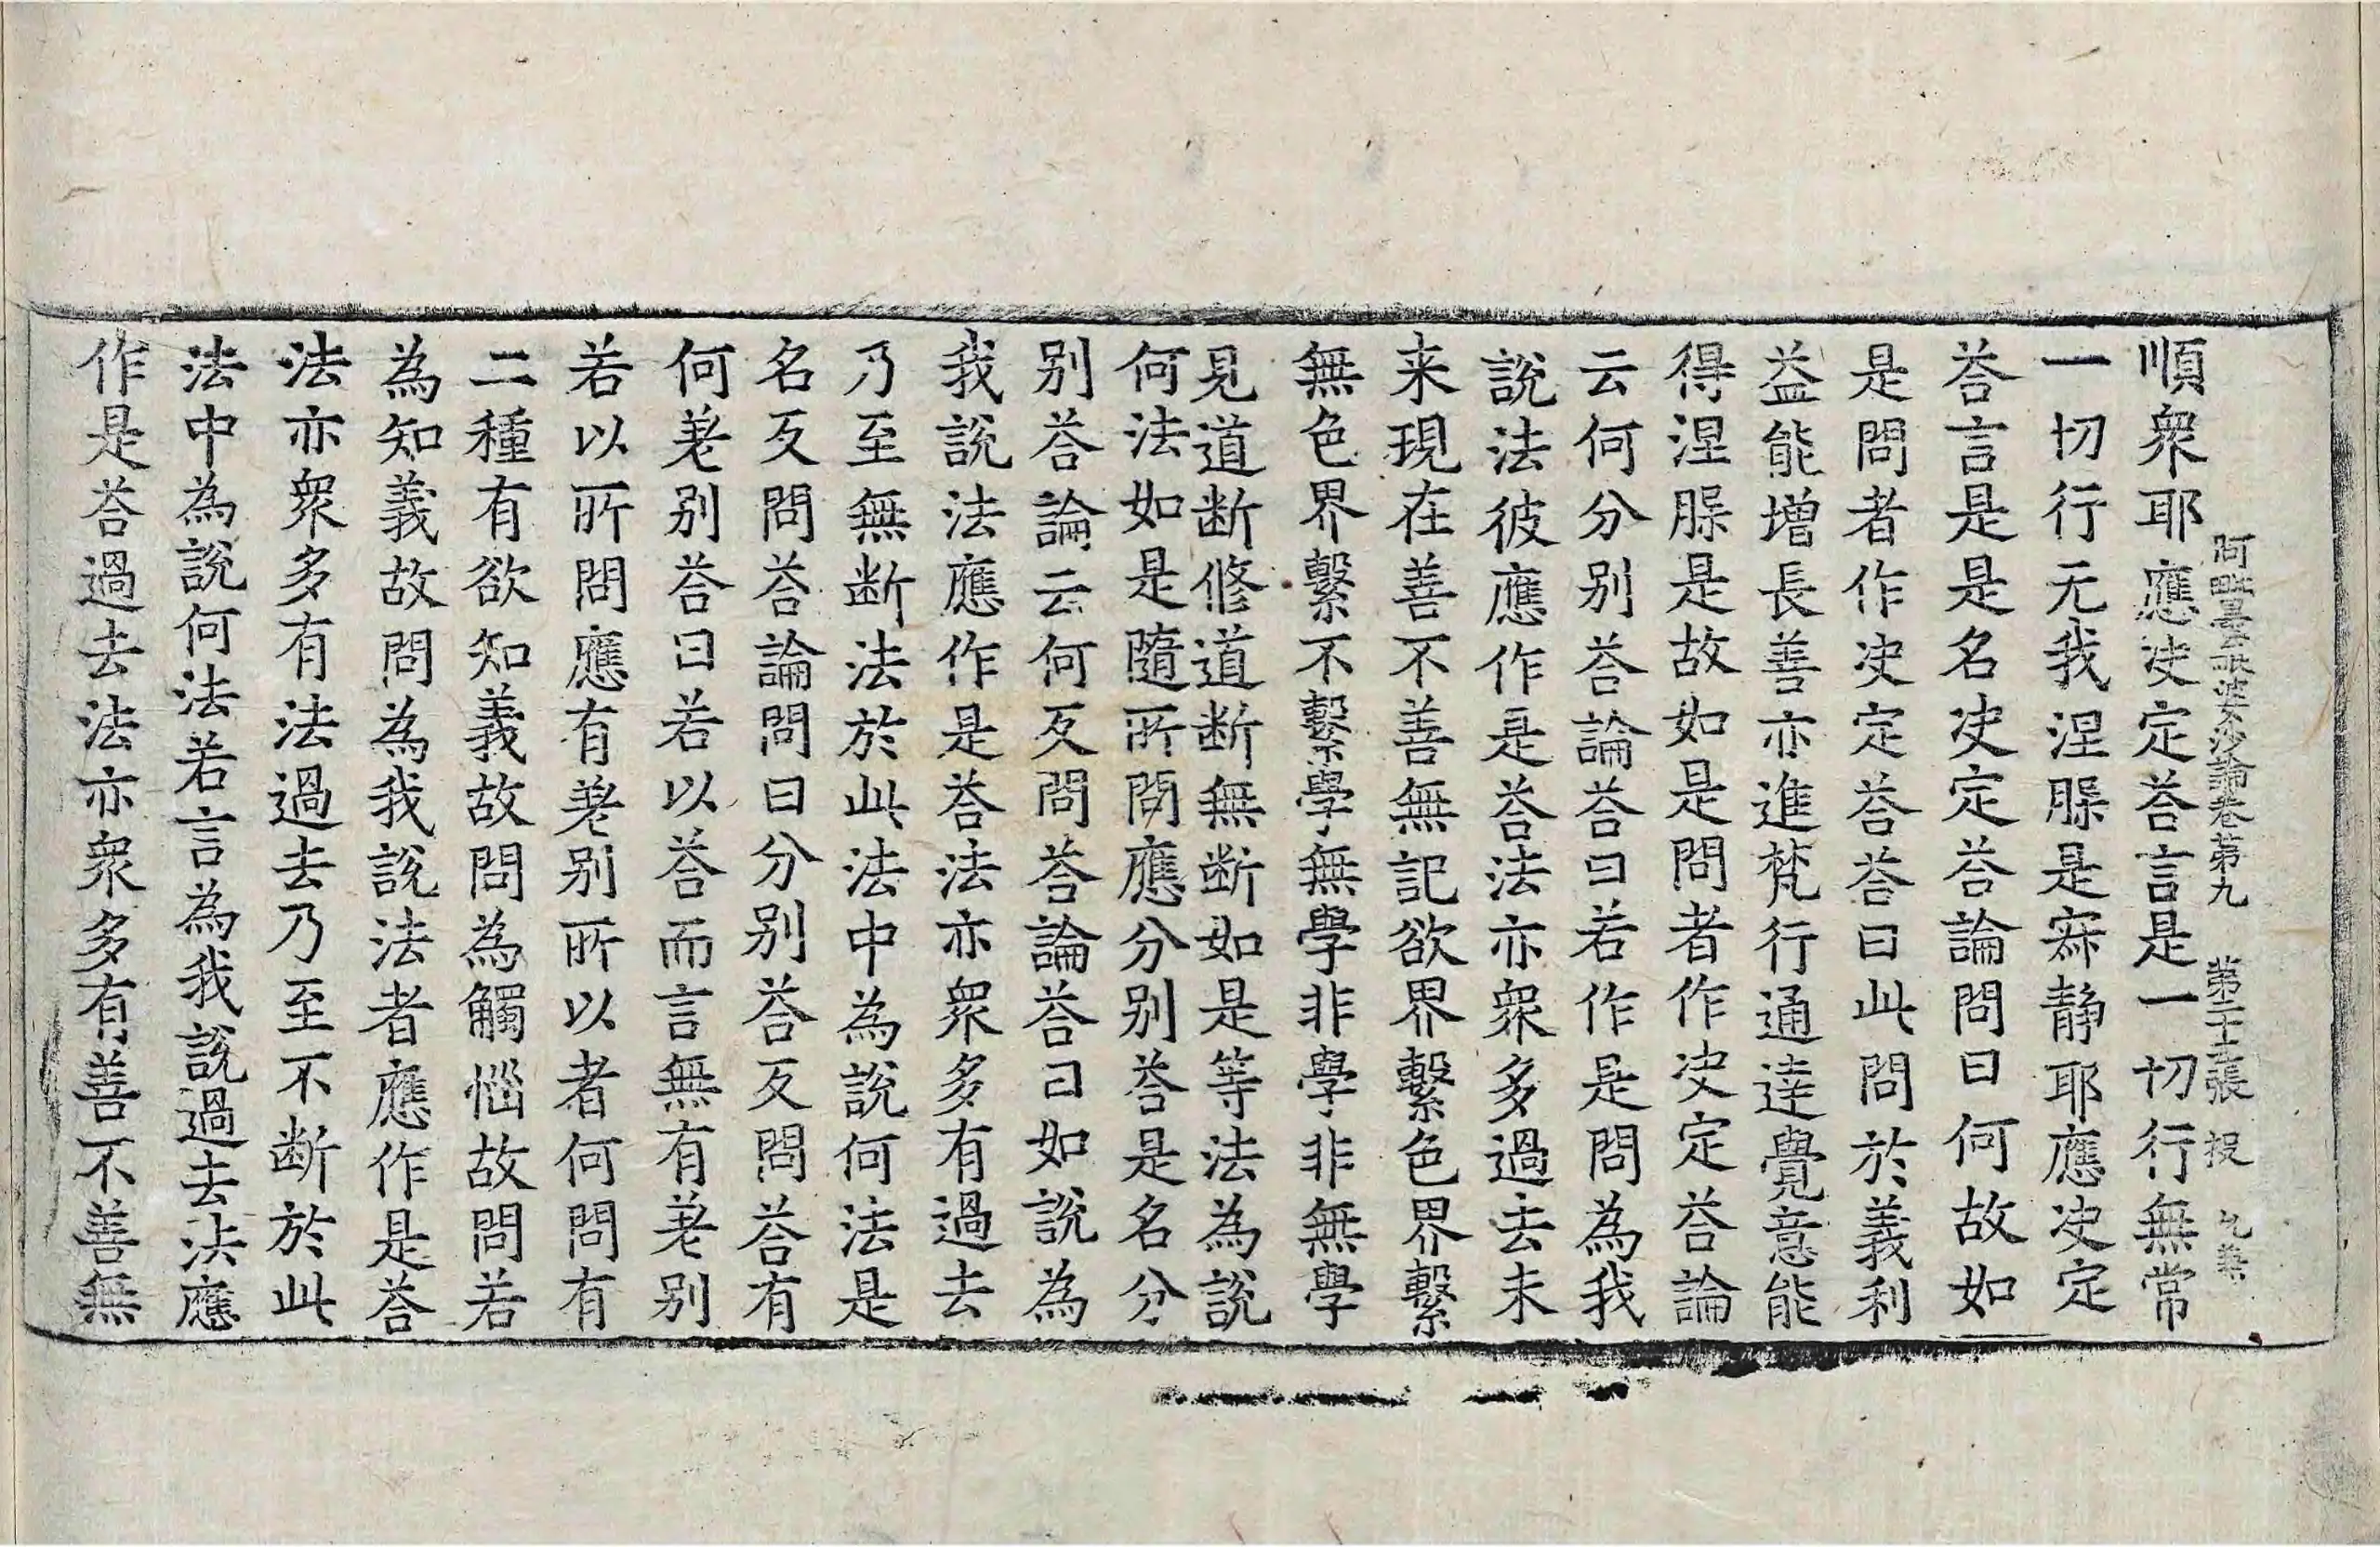 阿毗曇毗婆沙論卷第九　第二十二張　投
順衆耶應决定荅言是一切行無常
一切行无我涅槃是寂静耶應决定
荅言是是名决定荅論問曰何故如
是問者作决定荅荅曰此問於義利
益能增長善亦進梵行通達覺意能
得涅槃是故如是問者作决定荅論
云何分别荅論荅曰若作是問為我
說法彼應作是荅法亦衆多過去未
来現在善不善無記欲界繫色界繫
無色界繫不繫學無學非學非無學
見道断修道断無断如是等法為說
何法如是隨所問應分别荅是名分
别荅論云何反問荅論荅曰如說為
我說法應作是荅法亦衆多有過去
乃至無断法於此法中為說何法是
名反問荅論問曰分别荅反問荅有
何差别荅曰若以荅而言無有差别
若以所問應有差别所以者何問有
二種有欲知義故問為觸惱故問若
為知義故問為我說法者應作是荅
法亦衆多有法過去乃至不断於此
法中為說何法若言為我說過去法應
作是荅過去法亦衆多有善不善無